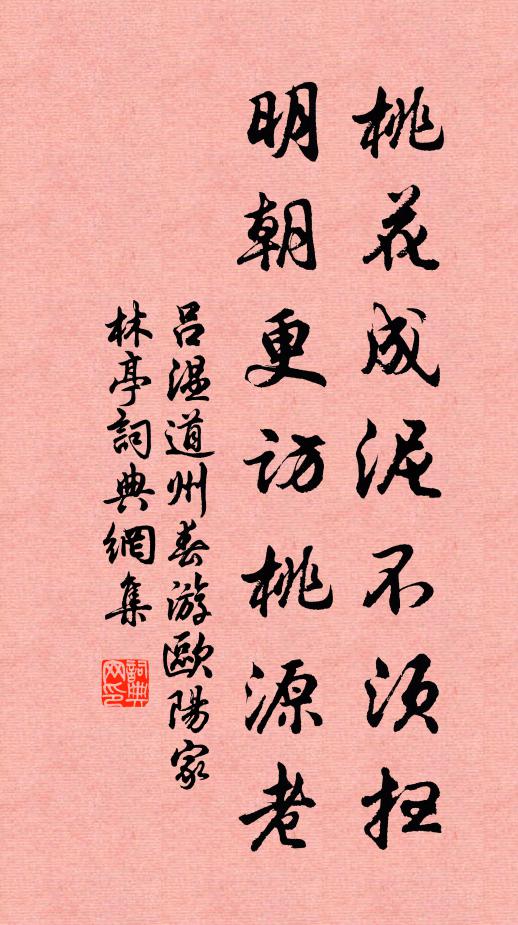 桃花成泥不須扫
明朝更访桃源老
呂溫道州春游歐陽家
林亭詞典網集
詞典网印